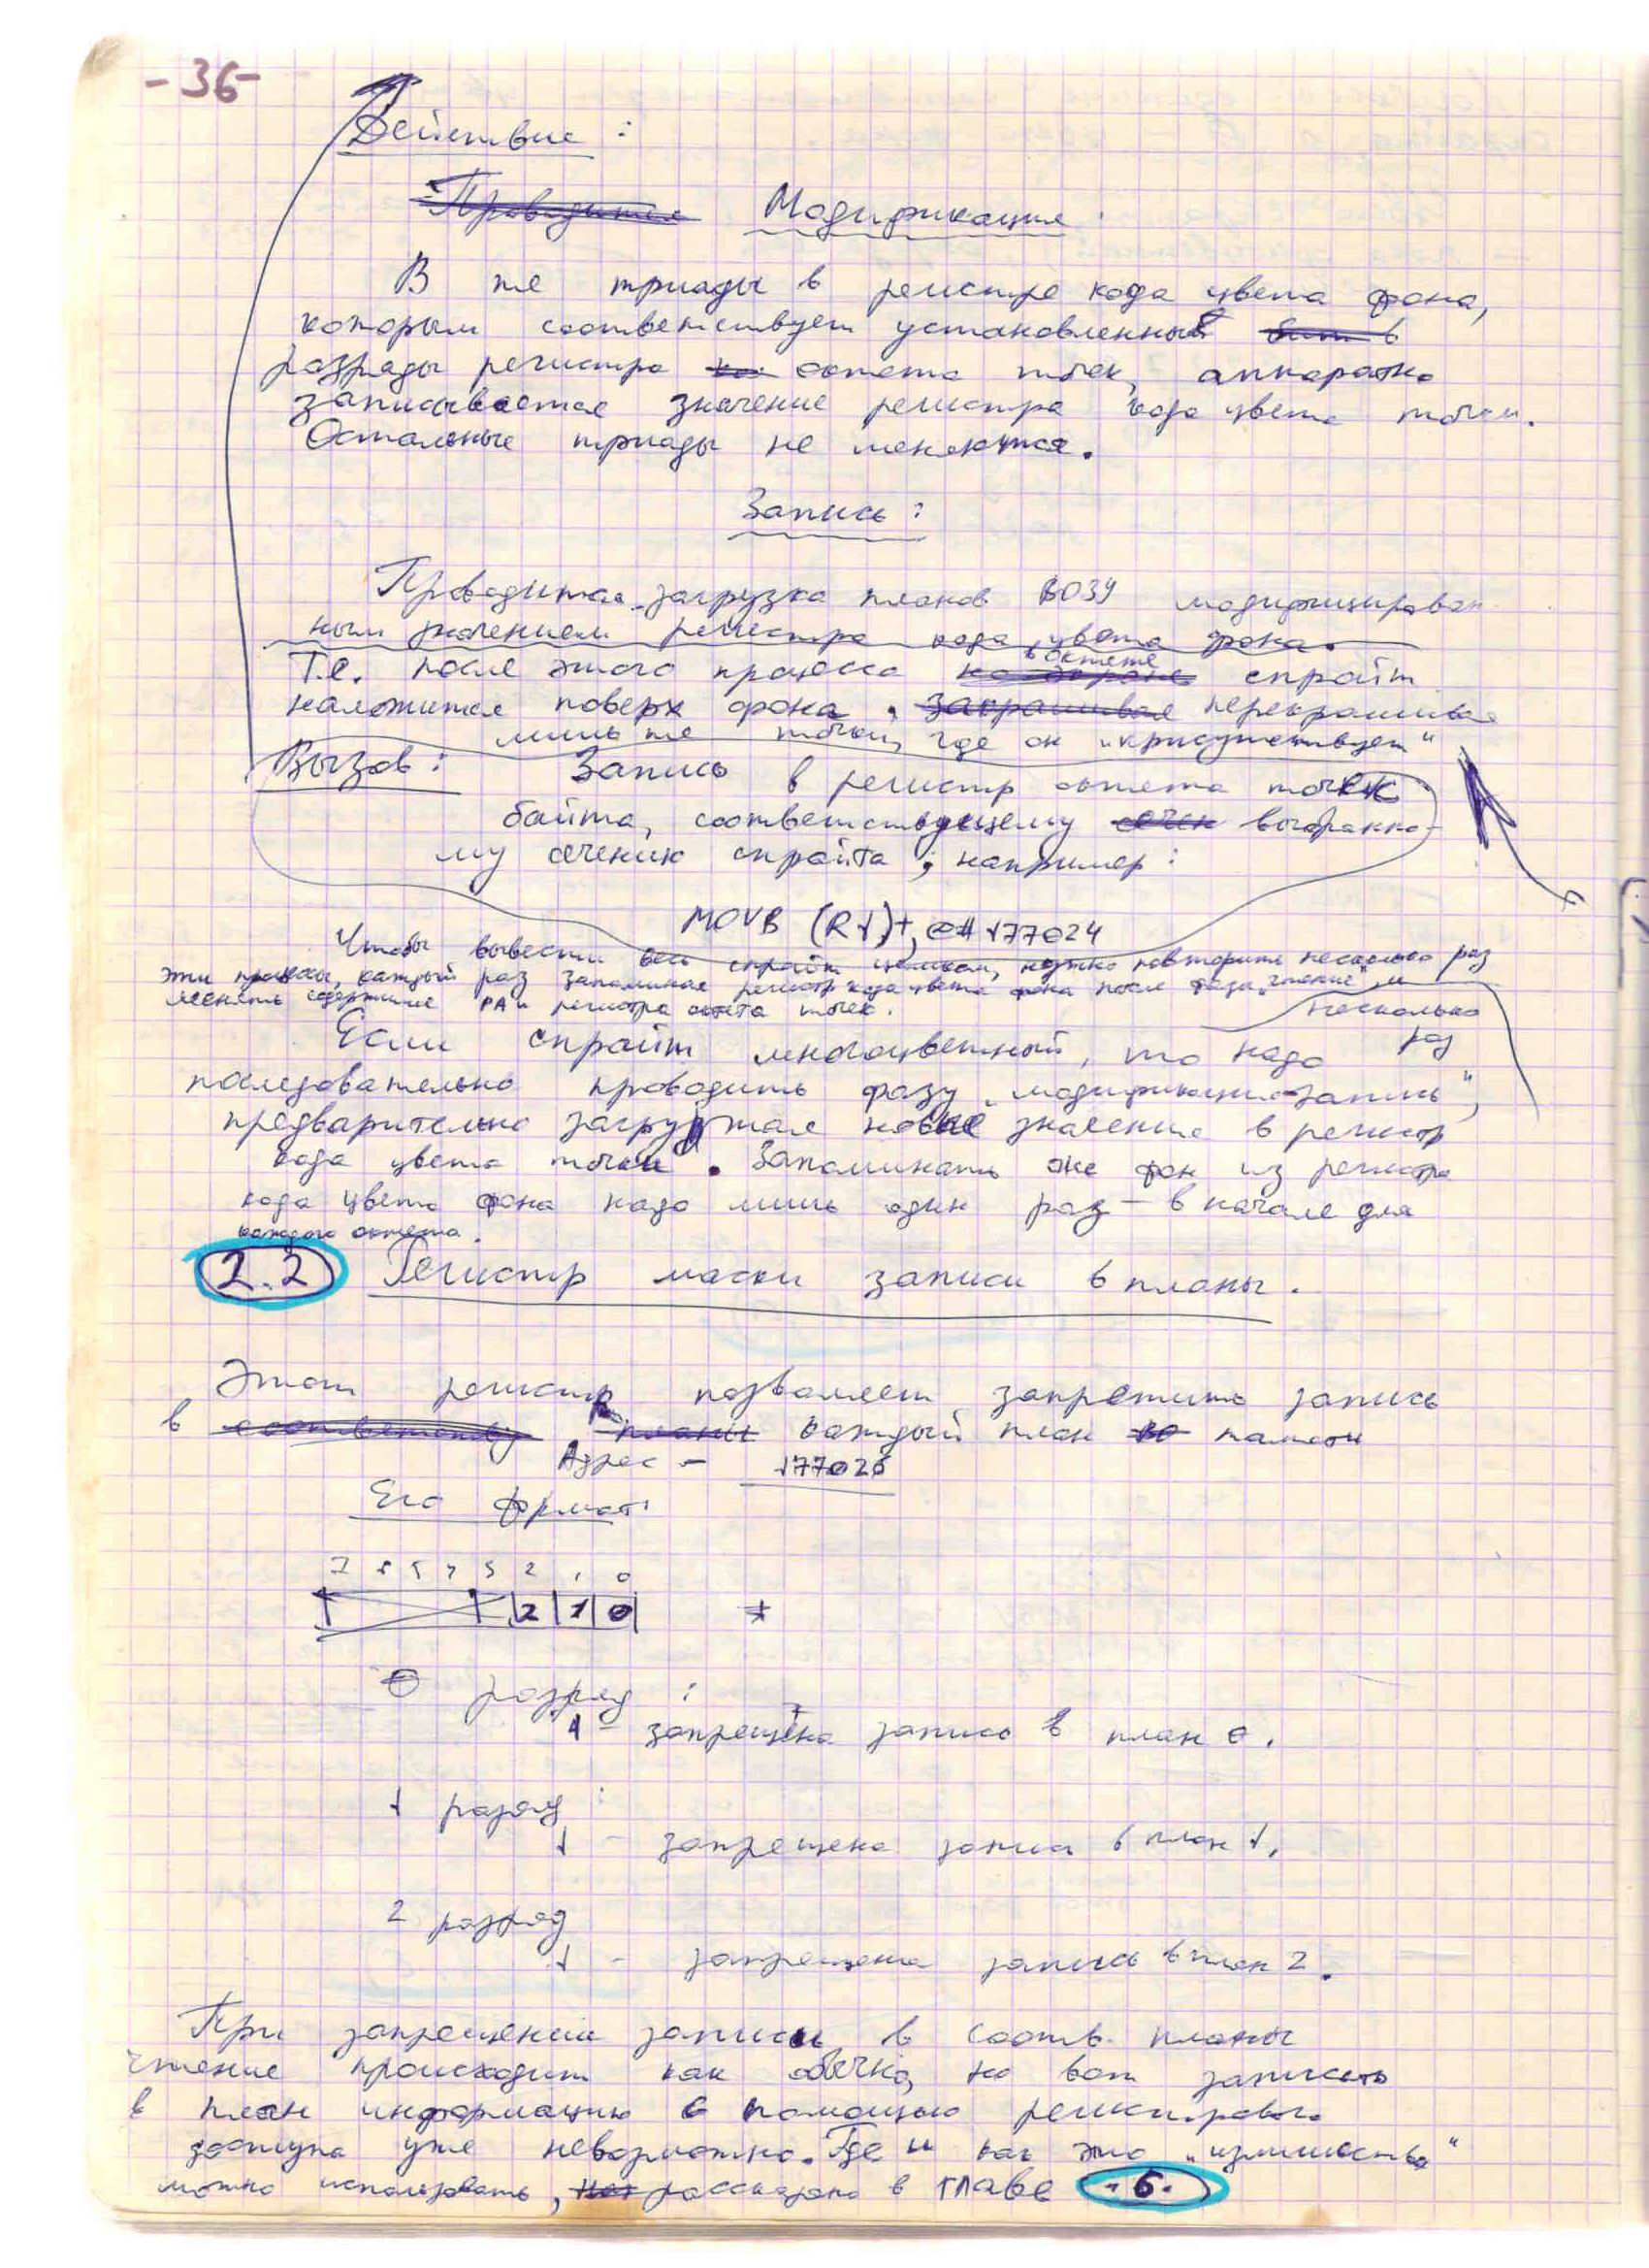 -36-
Действие:
Проводится Модификация:
В те триады в регистре кода цвета фона,
которым соответствует установленный бит в
разряды регистра октета точек, аппаратно
записывается значение регистра кода цвета точки.
Остальные триады не меняются.
Запись:
Проводится загрузка планов ВОЗУ модифицирован
ным значением регистра кода цвета фона.
Т.е. после этого процесса на экране в октете спрайт
наложится поверх фона, закрашивая перекрашивая
лишь те точки, где он „присутствует"
Вызов: Запись в регистр октета точек
байта, соответствующему сечен выбранно-
му сечению спрайта, например:
MOVB (R1)+, @# 177024
Чтобы вывести весь спрайт целиком, нужно повторить несколько раз
эти процессы, каждый раз запоминая регистр кода цвета фона после фазы „чтение" и
менять содержимое РА и регистра октета точек.
Если спрайт многоцветный, то надо несколько раз
последовательно проводить фазу „модификация-запись",
предварительно загружая новое значение в регистр
кода цвета точки. Запоминать же фон из регистра
кода цвета фона надо лишь один раз — в начале для
каждого октета.
2.2 Регистр маски записи в планы.
Этот регистр позволяет запретить запись
в соответству планы каждый план во памяти
Адрес - 177026
Его формат:
7 6 5 4 3 2 1 0
2 1 0 *
0 разряд:
1 - запрещена запись в план 0.
1 разряд:
1 - запрещена запись в план 1.
2 разряд
1 - запрещена запись в план 2.
При запрещении записи в соотв. планы
чтение происходит как обычно, но вот записать
в план информацию с помощью регистрового
доступа уже невозможно. Где и как это „излишество"
можно использовать, рассказано в главе -6.